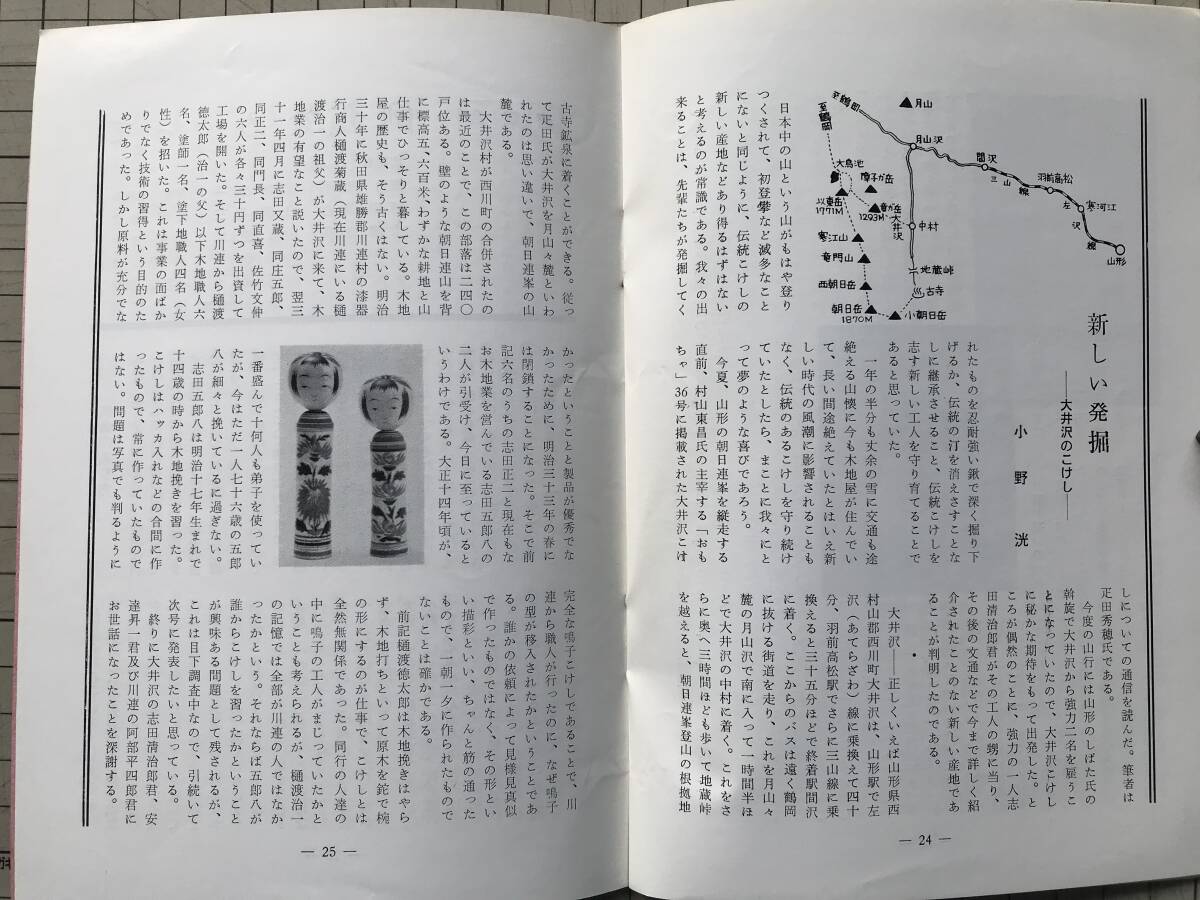 新しい発掘
――大井沢のこけし――
小野洸
日本中の山という山がもはや登り
つくされて、初登攀など滅多なこと
にないと同じように、伝統こけしの
新しい産地などあり得るはずはない
と考えるのが常識である。我々の出
来ることは、先輩たちが発掘してく
れたものを忍耐強い鍬で深く掘り下
げるか、伝統の灯を消えさすことな
しに継承させること、伝統こけしを
志す新しい工人を守り育てることで
あると思っていた。
一年の半分も丈余の雪に交通も途
絶える山懐に今も木地屋が住んでい
て、長い間途絶えていたとはいえ新
しい時代の風潮に影響されることも
なく、伝統のあるこけしを守り続け
ていたとしたら、まことに我々にと
って夢のような喜びであろう。
今夏、山形の朝日連峯を縦走する
直前、村山東昌氏の主宰する「おも
ちゃ」36号に掲載された大井沢こけ
しについての通信を読んだ。筆者は
疋田秀穂氏である。
今度の山行には山形のしばた氏の
斡旋で大井沢から強力二名を雇うこ
とになっていたので、大井沢こけし
に秘かな期待をもって出発した。と
ころが偶然のことに、強力の一人志
田清治郎君がその工人の甥に当り、
その後の文通などで今まで詳しく紹
介されたことのない新しい産地であ
ることが判明したのである。
大井沢――正しくいえば山形県西
村山郡西川町大井沢は、山形駅で左
沢(あてらざわ)線に乗換えて四十
分、羽前高松駅でさらに三山線に乗
換えると三十五分ほどで終着駅間沢
に着く。ここからのバスは遠く鶴岡
に抜ける街道を走り、これを月山々
麓の月山沢で南に入って一時間半ほ
どで大井沢の中村に着く。これをさ
らに奥へ三時間ほども歩いて地蔵峠
を越えると、朝日連峯登山の根拠地
月山
至鶴岡
至鶴岡
月山沢
間沢
三山線
羽前高松
寒河江
左沢線
山形
大鳥池
障子が岳
以東岳
1771M
竜が岳
1293M
大井沢
中村
寒江山
竜門山
地蔵峠
古寺
西朝日岳
朝日岳
1870M
小朝日岳
― 24 ―
古寺鉱泉に着くことができる。従っ
て疋田氏が大井沢を月山々麓といわ
れたのは思い違いで、朝日連峯の山
麓である。
大井沢村が西川町の合併されたの
は最近のことで、この部落は二四〇
戸位ある。壁のような朝日連山を背
に標高五、六百米、わずかな耕地と山
仕事でひっそりと暮している。木地
屋の歴史も、そう古くはない。明治
三十年に秋田県雄勝郡川連村の漆器
行商人樋渡菊蔵(現在川連にいる樋
渡治一の祖父)が大井沢に来て、木
地業の有望なこと説いたので、翌三
十一年四月に志田又蔵、同庄五郎、
同正二、同門長、同直喜、佐竹文仲
の六人が各々三十円ずつを出資して
工場を開いた。そして川連から樋渡
徳太郎(治一の父)以下木地職人六
名、塗師一名、塗下地職人四名(女
性)を招いた。これは事業の面ばか
りでなく技術の習得という目的のた
めであった。しかし原料が充分でな
かったということと製品が優秀でな
かったために、明治三十三年の春に
は閉鎖することになった。そこで前
記六名のうちの志田正二と現在もな
お木地業を営んでいる志田五郎八の
二人が引受け、今日に至っていると
いうわけである。大正十四年頃が、
一番盛んで十何人も弟子を使ってい
たが、今はただ一人七十六歳の五郎
八が細々と挽いているに過ぎない。
志田五郎八は明治十七年生まれで
十四歳の時から木地挽きを習った。
こけしはハッカ入れなどの合間に作
ったもので、常に作っていたもので
はない。問題は写真でも判るように
完全な鳴子こけしであることで、川
連から職人が行ったのに、なぜ鳴子
の型が移入されたかということであ
る。誰かの依頼によって見様見真似
で作ったものではなく、その形とい
い描彩といい、ちゃんと筋の通った
もので、一朝一夕に作られたもので
ないことは確かである。
前記樋渡徳太郎は木地挽きはやら
ず、木地打ちといって原木を鉈で椀
の形にするのが仕事で、こけしとは
全然無関係であった。同行の人達の
中に鳴子の工人がまじっていたかと
いうことも考えられるが、樋渡治一
の記憶では全部が川連の人ではなか
ったかという。それならば五郎八が
誰からこけしを習ったかということ
が興味ある問題として残されるが、
これは目下調査中なので、引続いて
次号に発表したいと思っている。
終りに大井沢の志田清治郎君、安
達昇一君及び川連の阿部平四郎君に
お世話になったことを深謝する。
― 25 ―